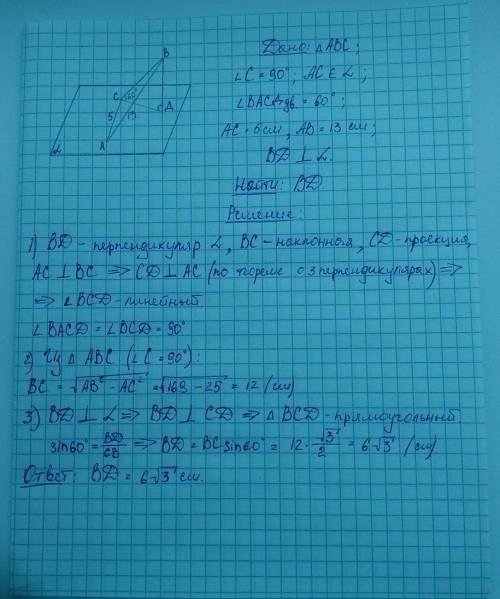 Дано: △ABC;
∠C = 90°; AC ∈ α;
∠BACD дв. = 60°;
AC = 5 см, AB = 13 см;
BD ⊥ α.
Найти: BD
Решение:
B
C 60°
5 13 D
A
α
1) BD - перпендикуляр α, BC - наклонная, CD - проекция,
AC ⊥ BC ⟹ CD ⊥ AC (по теореме о 3 перпендикулярах) ⟹
⟹ ∠BCD - линейный
∠BACD = ∠BCD = 90°
2) Из △ ABC (∠C = 90°):
BC = √AB² - AC² = √169 - 25 = 12 (см)
3) BD ⊥ α ⟹ BD ⊥ CD ⟹ △ BCD - прямоугольный
sin60° = BD/CB ⟹ BD = BC sin60° = 12 · √3/2 = 6√3 (см)
Ответ: BD = 6√3 см.